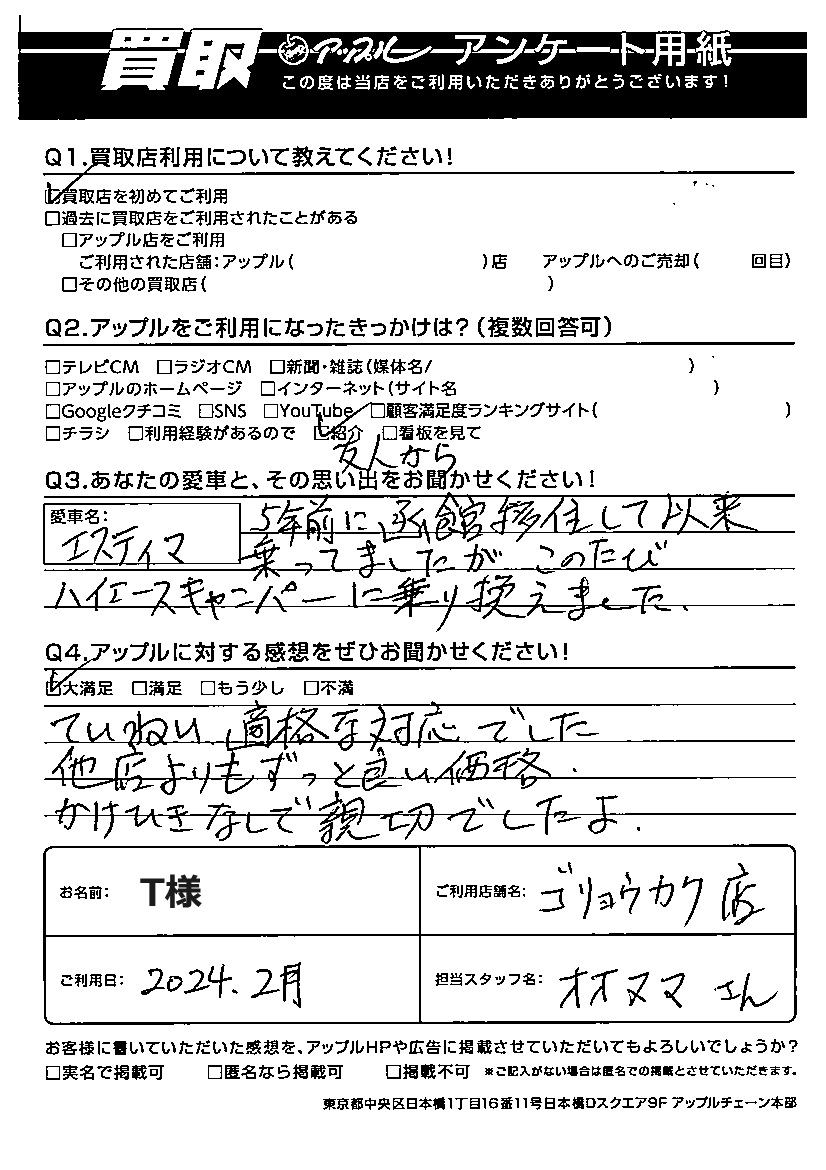 買取 アップル アンケート用紙
この度は当店をご利用いただきありがとうございます!
Q1.買取店利用について教えてください!
☑買取店を初めてご利用
□過去に買取店をご利用されたことがある
□アップル店をご利用
ご利用された店舗:アップル( )店 アップルへのご売却( 回目)
□その他の買取店( )
Q2.アップルをご利用になったきっかけは?(複数回答可)
□テレビCM □ラジオCM □新聞・雑誌(媒体名/ )
□アップルのホームページ □インターネット(サイト名 )
□Googleクチコミ □SNS □YouTube □顧客満足度ランキングサイト( )
□チラシ □利用経験があるので ☑紹介 □看板を見て
友人から
Q3.あなたの愛車と、その思い出をお聞かせください!
愛車名:
エスティマ
5年前に函館移住して以来
乗ってましたが このたび
ハイエースキャンパーに乗り換えました.
Q4.アップルに対する感想をぜひお聞かせください!
☑大満足 □満足 □もう少し □不満
ていねい 適格な対応 でした
他店よりもずっと良い価格.
かけひきなしで親切でしたよ.
お名前: T様
ご利用店舗名: ゴリョウカク店
ご利用日: 2024.2月
担当スタッフ名: オオヌマ さん
お客様に書いていただいた感想を、アップルHPや広告に掲載させていただいてもよろしいでしょうか?
□実名で掲載可 □匿名なら掲載可 □掲載不可 ※ご記入がない場合は匿名での掲載とさせていただきます。
東京都中央区日本橋1丁目16番11号日本橋Dスクエア9F アップルチェーン本部